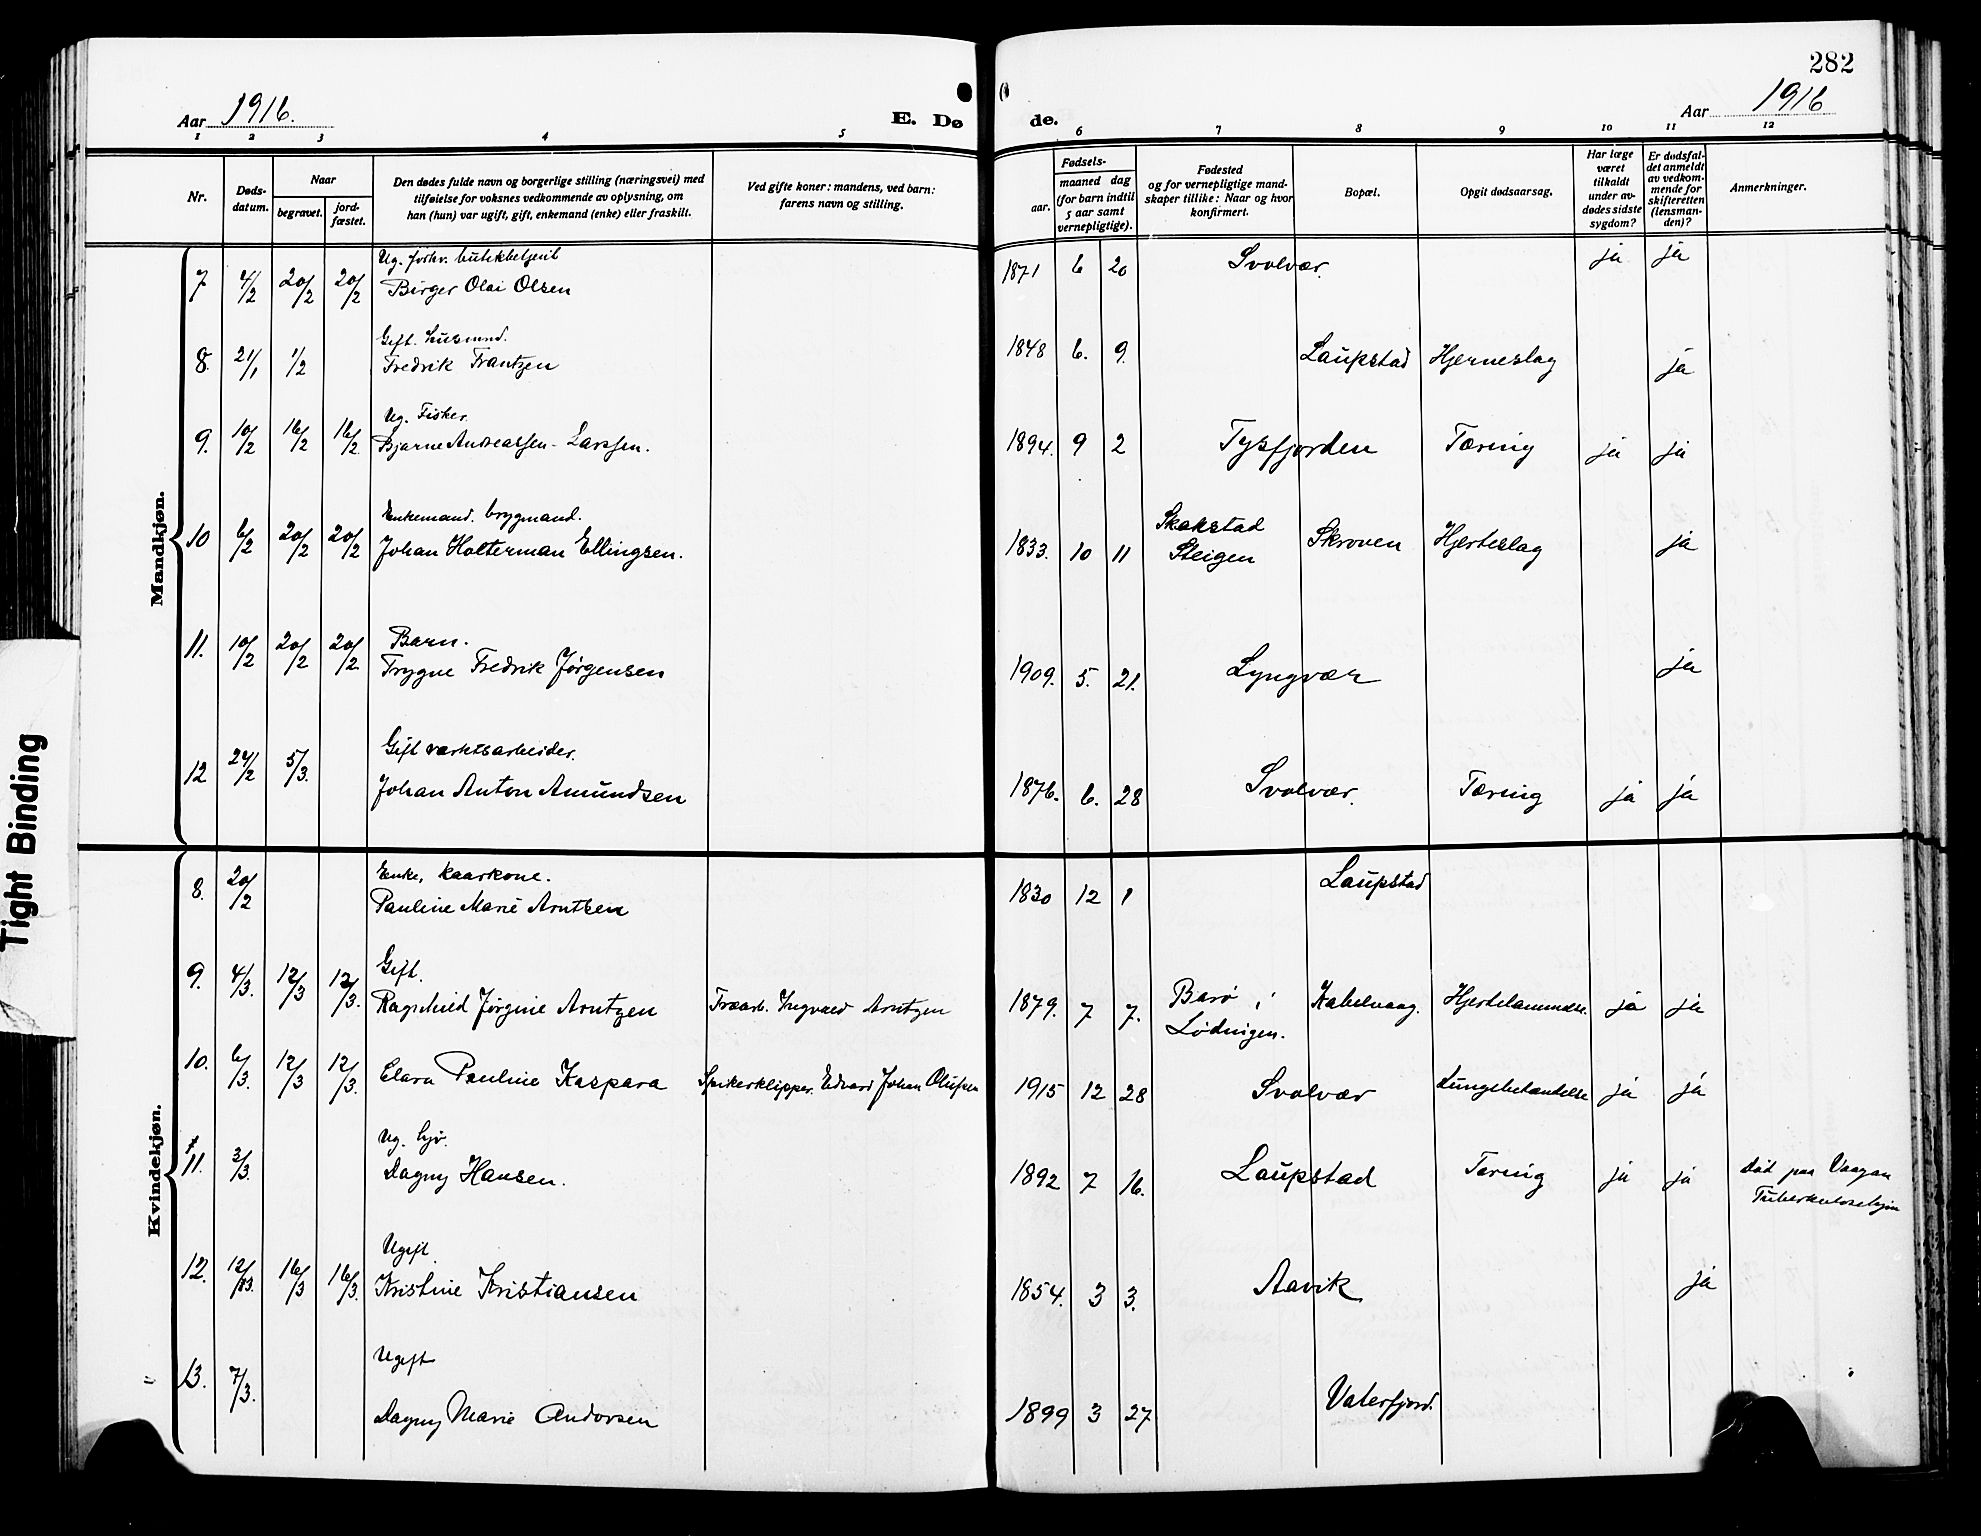 282
Aar 1916. E. Dø de. Aar 1916
1 2 3 4 5 6 7 8 9 10 11 12
Nr. Døds-datum. Naar begravet. jord-fæstet. Den dødes fulde navn og borgerlige stilling (næringsvei) med tilføielse for voksnes vedkommende av oplysning, om han (hun) var ugift, gift, enkemand (enke) eller fraskilt. Ved gifte koner: mandens, ved barn: farens navn og stilling. Fødsels- aar. maaned dag (for barn indtil 5 aar samt vernepligtige). Fødested og for vernepligtige mandskaper tillike: Naar og hvor konfirmert. Bopæl. Opgit dødsaarsag. Har læge været tilkaldt under av-dødes sidste sygdom? Er dødsfal-det anmeldt av vedkom-mende for skifteretten (lensman-den)? Anmerkninger.
Mandkjøn.
Ug. forhv. butikbetjent
7 4/2 20/2 20/2 Birger Olai Olsen 1871 6 20 Svolvær. ja ja
Gift. husmand.
8. 21/1 1/2 Fredrik Frantzen 1848 6. 9. Laupstad Hjerneslag ja
Ug. Fisker
9. 10/2 16/2 16/2 Bjarne Andreassen-Larssen. 1894. 9 2 Tysfjorden Tæring ja ja
Enkemand. brygmand.
10 6/2 20/2 20/2 Johan Holterman Ellingsen. 1833. 10 11 Skakstad Steigen Skroven Hjerteslag ja
Barn.
11. 10/2 20/2 20/2 Trygve Fredrik Jørgensen 1909. 5. 21. Lyngvær ja
Gift værktsarbeider.
12 24/2 5/3. Johan Anton Amundsen 1876. 6. 28 Svolvær. Tæring ja ja
Kvindekjøn.
Enke, kaarkone.
8. 20/2 Pauline Marie Arntsen 1830 12 1 Laupstad
Gift.
9. 4/3. 12/3 12/3. Ragnhild Jørgine Arntzen Træarb. Ingvald Arntzen 1879. 7 7. Barø i Lødingen. Kabelvaag. Hjertelammelse. ja ja
10. 6/3. 12/3 12/3. Clara Pauline Kaspara Spikerklipper. Edvard Johan Olufsen 1915 12 28 Svolvær Lungebetændelse ja ja
Ug. syv.
11. 3/3. Dagny Hansen. 1892 7 16. Laupstad Tæring ja ja Død paa Vaagan Tuberkulosehjem
Ugift.
12. 12/3. 16/3 16/3. Kristine Kristiansen 1854. 3 3. Aavik ja
Ugift
13. 7/3. Dagny Marie Andorsen 1899 3 27 Vaterfjord.
Tight Binding